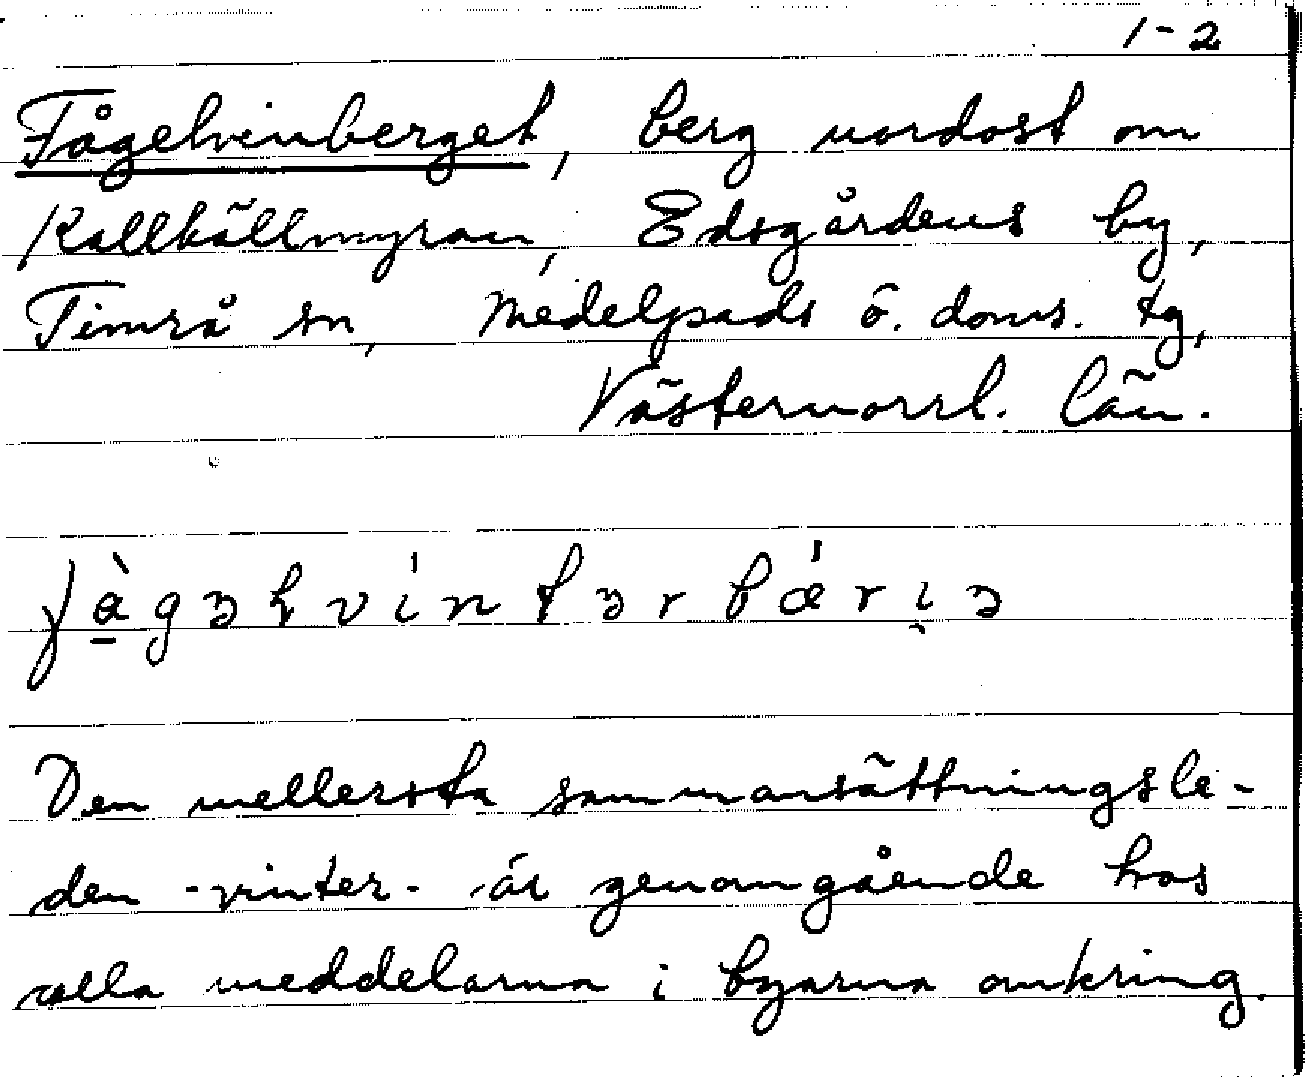 1-2
Fågelvinberget, berg nordost om
Kallkällmyran, Edsgårdens by,
Timrå sn, Medelpads ö. doms. tg,
Västernorrl. län.
fàgəlvíntərbǽrįə
Den mellersta sammansättningsle-
den -vinter- är genomgående hos
alla meddelarna i byarna omkring.